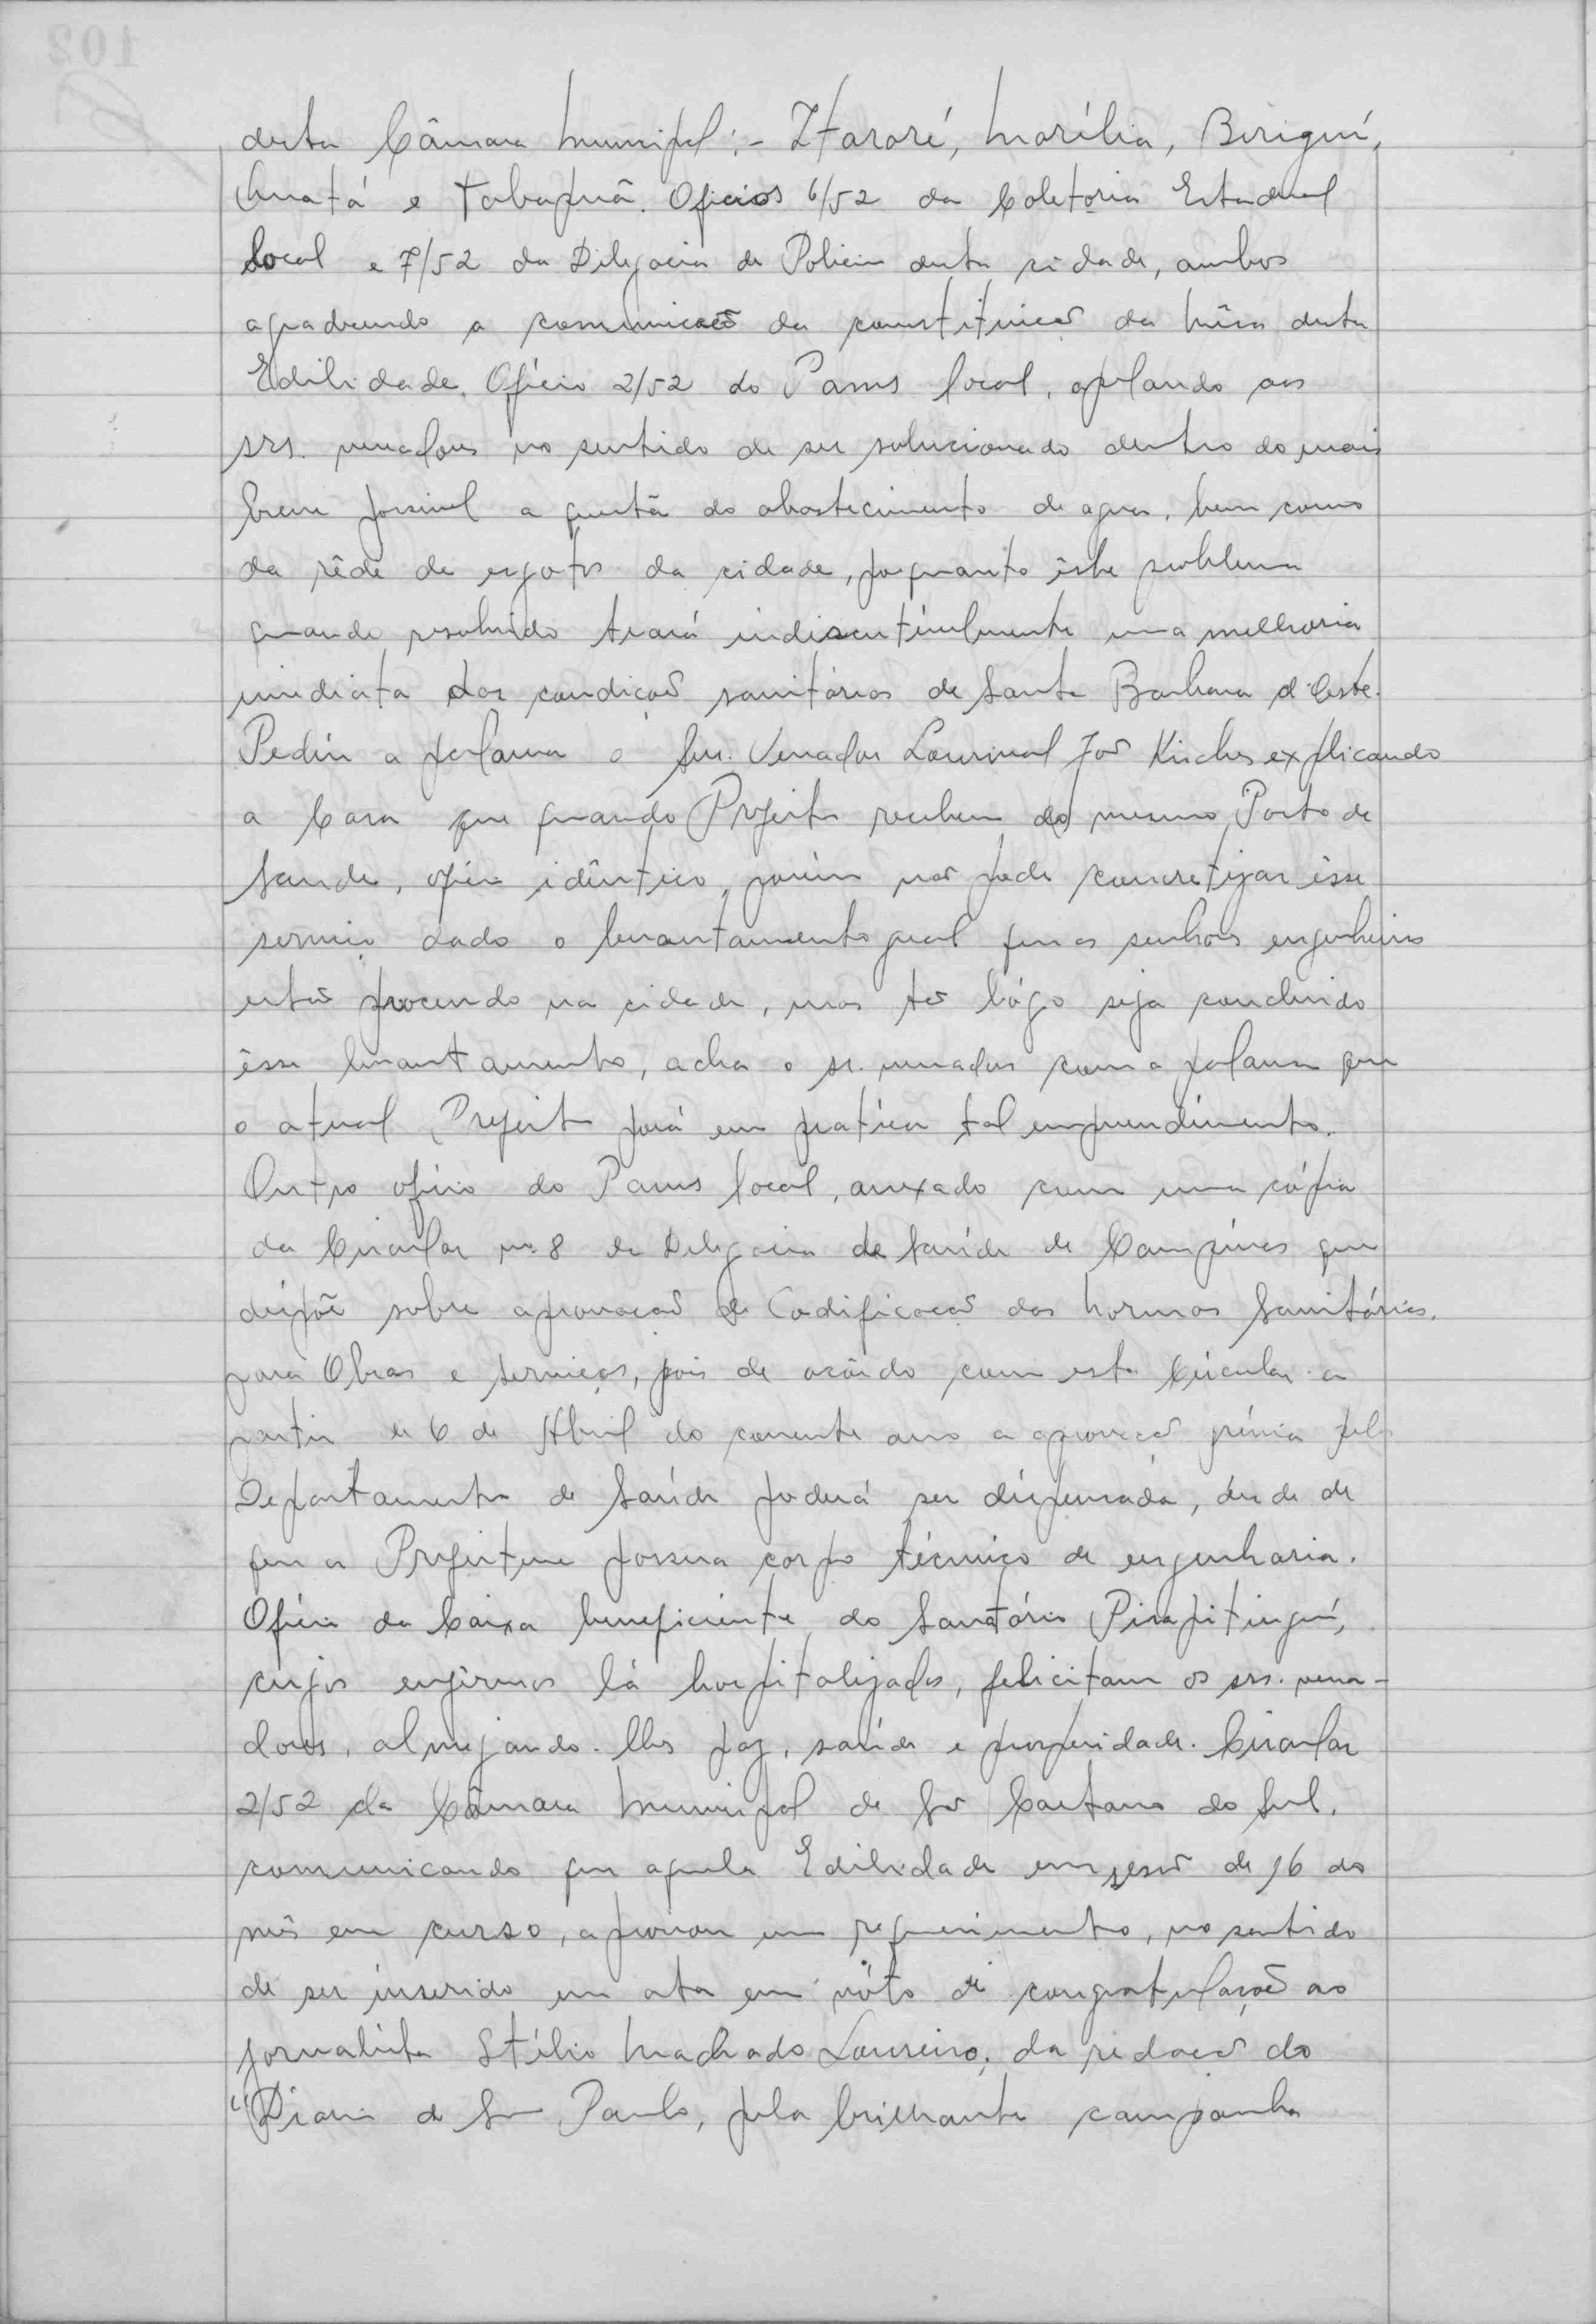 desta Câmara Municipal:- Itararé, Marília, Biriguí,
e Tabapuã. Oficios 6/52 da Coletoria Estadual
local e 7/52 da Delegacia de Policia desta cidade, ambos
agradecendo a comunicação da constituição da Mêsa desta
Edilidade. Ofício 2/52 do Pams local, apelando aos
srs. vereadores no sentido de ser solucionado dentro do mais
breve possivel a questão do abastecimento de agua, bem como
da rêde de esgotos da cidade, porquanto êste problema
quando resolvido trará indiscutívelmente uma melhoria
imediata das condições sanitárias de Santa Barbara d'Oeste.
Pediu a palavra o Snr. Vereador Lourival José explicando
a Casa que quando Prefeito recebeu do mesmo Posto de
Saude, ofício idêntico, porém não pode concretizar êsse
serviço dado o levantamento geral que os senhores engenheiros
estão procendo na cidade, mas tão lógo seja concluido
êsse levantamento, acha o sr. vereador com a palavra que
o atual Prefeito porá em pratica tal empreendimento.
Outro ofício do Pams local, anexado com uma cópia
da Circular nº 8 da Delegacia de Saúde de Campinas que
dispõe sobre aprovação de Codificação das Normas Sanitárias,
para Obras e Serviços, pois de acôrdo com esta Circular a
partir de 6 de Abril do corrente ano a aprovação prévia pelo
Departamento de Saúde poderá ser dispensada, desde de
que a Prefeitura possua corpo técnico de engenharia.
Ofício da Caixa beneficiente do Sanatório Pirapitinguí,
cujos enfêrmos lá hospitalizados, felicitam os srs. verea-
dores, almejando-lhes paz, saúde e prosperidade. Circular
2/52 da Câmara Municipal de São Caetano do Sul,
comunicando que aquela Edilidade em sessão de 16 do
mês em curso, aprovou um requerimento, no sentido
de ser inserido em ata em vóto de congratulações ao
jornalista Stélio Machado Loureiro, da redação do
"Diario de São Paulo, pela brilhante campanha